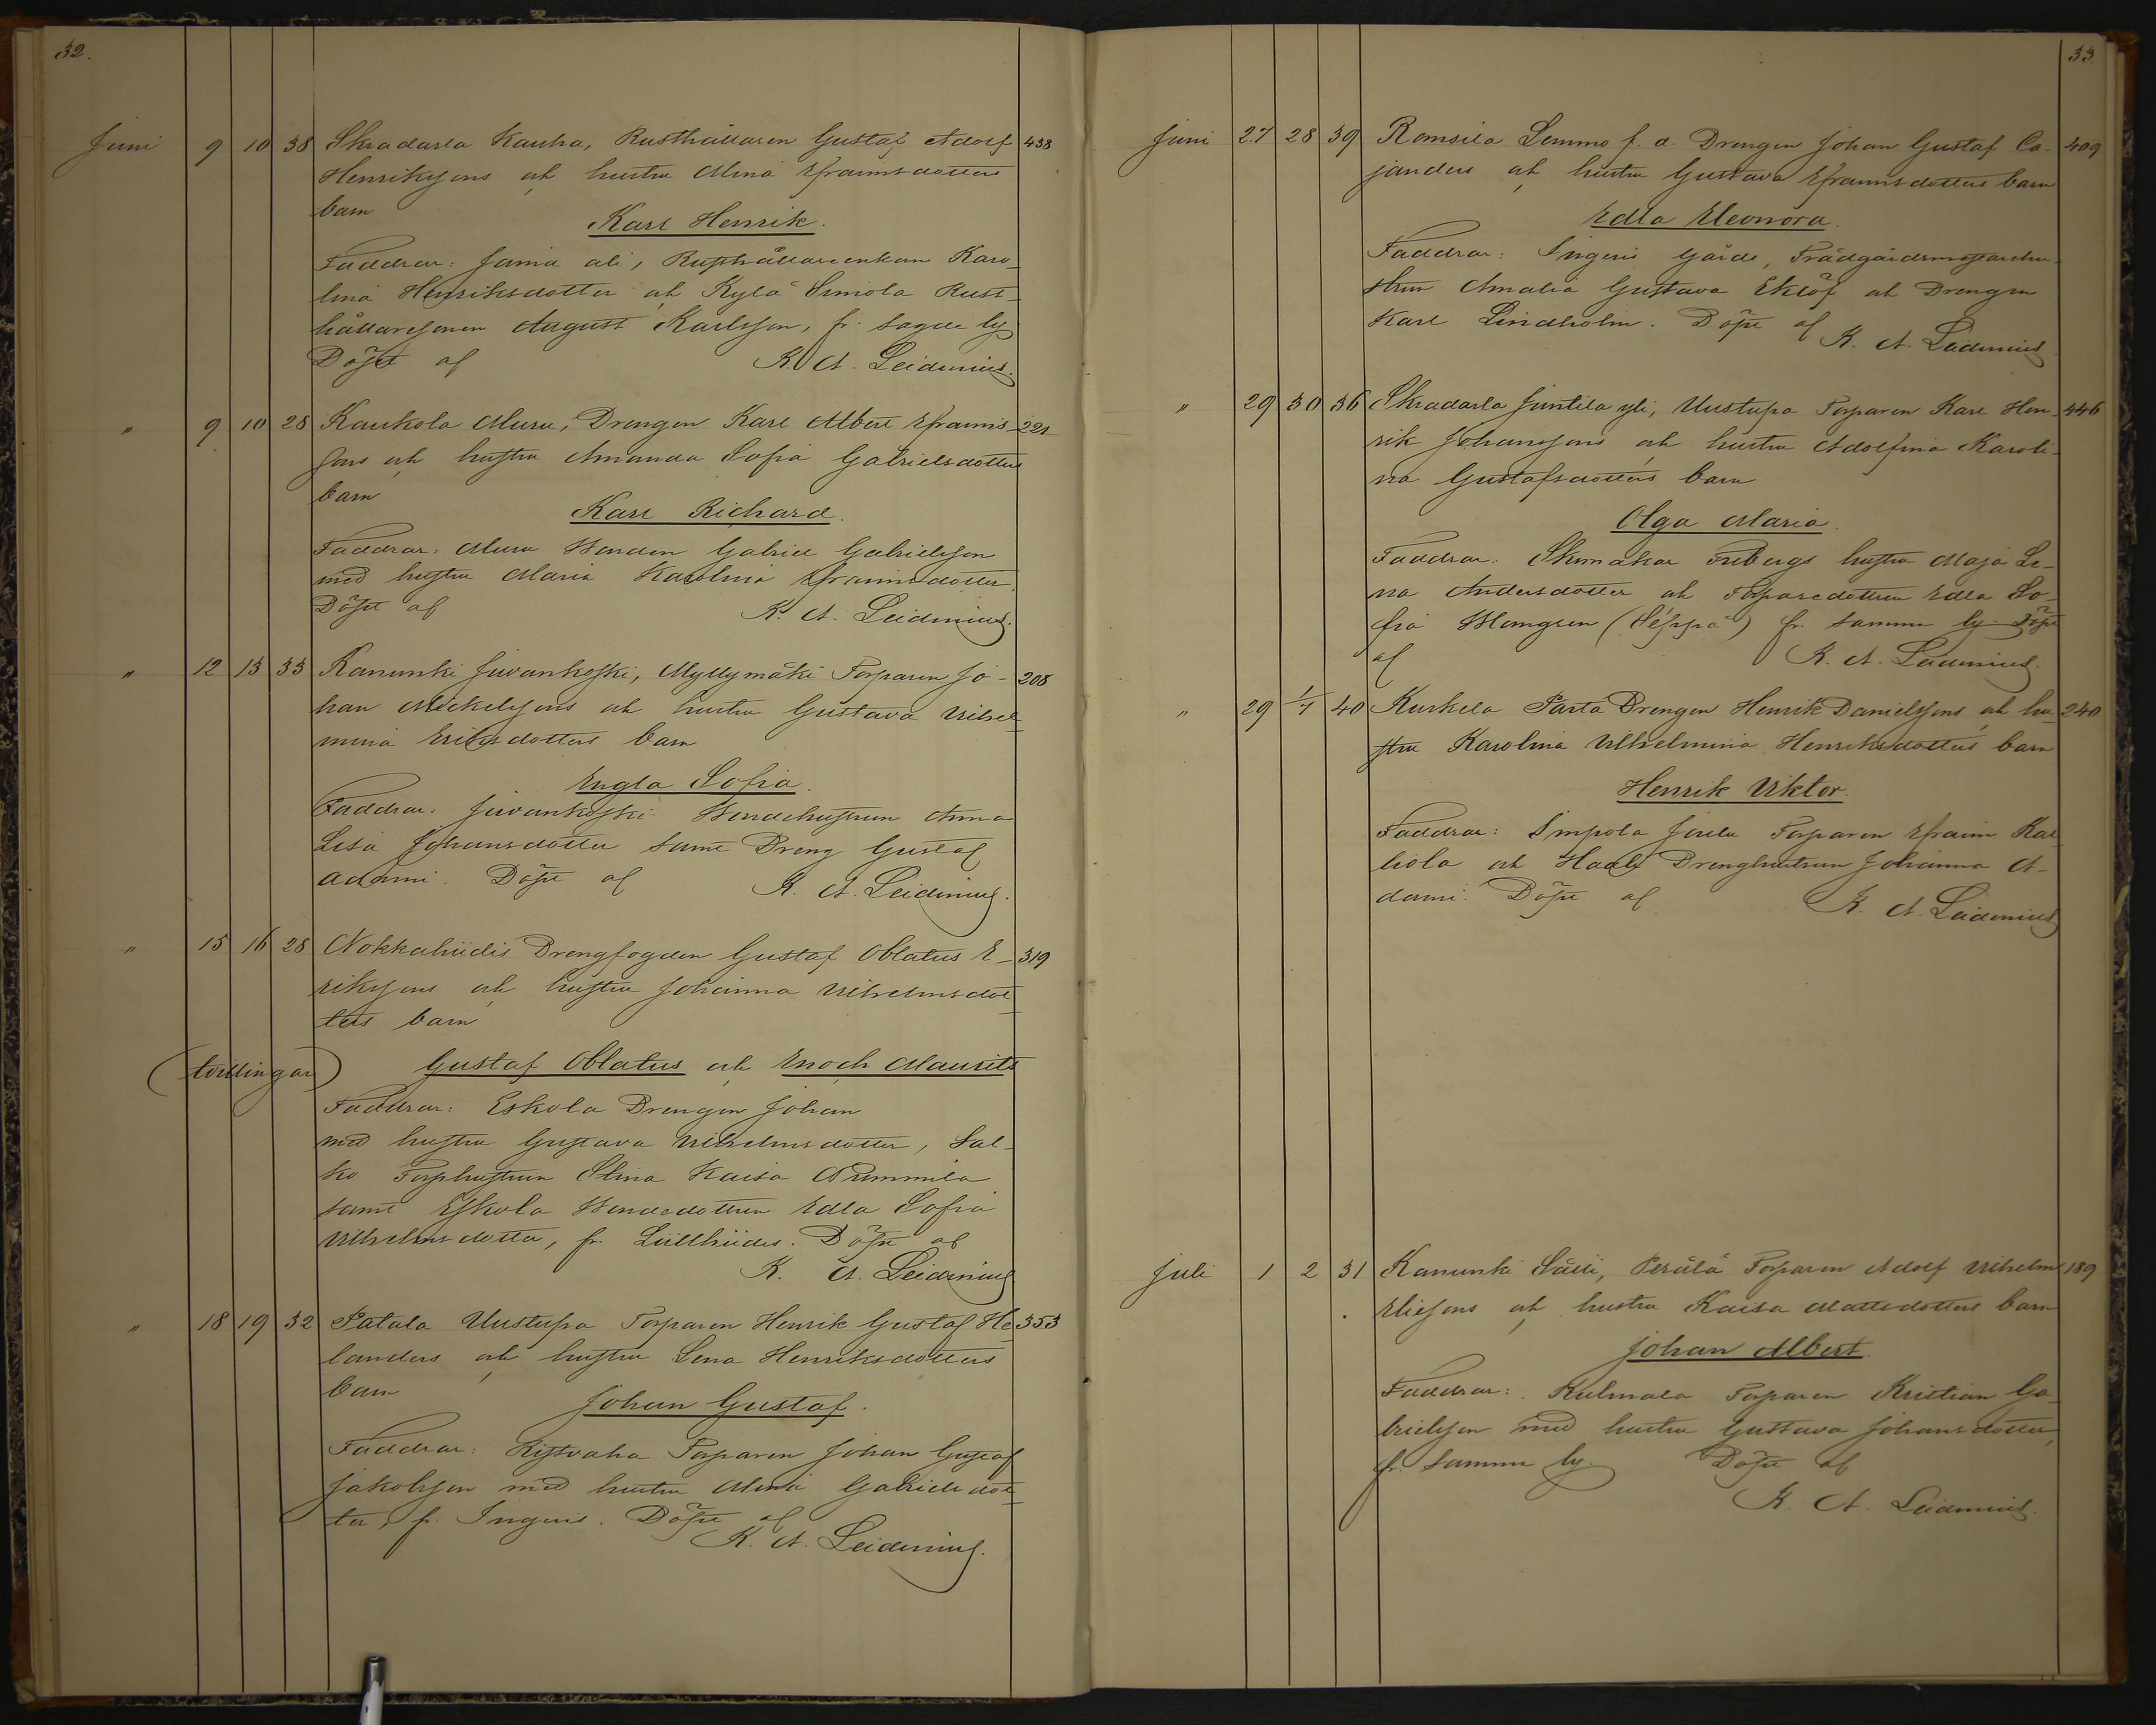 32.
Juni 9 10 38 Skradarla Kauha, Rusthållaren Gustaf Adolf 438
Henrikssons och hustru Mina Efraimsdotters
barn
Karl Henrik.
Faddrar: Jama ali, Rusthållareenkan Karo-
lina Henriksdotter och Kylä Simola Rust-
hållaresonen August Karlsson, fr. sagde by
Döpt af K. A. Leidenius.
" 9 10 28 Kaukola Muru, Drengen Karl Albert Efraims- 221
sons och hustru Amanda Sofia Gabrielsdotters
barn
Karl Richard.
Faddrar: Muru Bonden Gabriel Gabrielsson
med hustru Maria Karolina Efraimsdotter
Döpt af K. A. Leidenius.
" 12 13 33 Kanunki Juvankoski, Myllymäki Torparen Jo- 208
han Mickelssons och hustru Gustava Vilhel-
mina Eriksdotters barn
Engla Sofia.
Faddrar: Juvankoski Bondehustrun Anna
Lisa Johansdotter samt Dreng Gustaf
Adami. Döpt af K. A. Leidenius.
" 15 16 28 Nokkahiidis Drengfogden Gustaf Oblatus E- 319
rikssons och hustru Johanna Vilhelmsdot-
ters barn
(tvillingar) Gustaf Oblatus och Enoch Maurits
Faddrar: Eskola Drengen Johan
med hustru Gustava Vilhelmsdotter, Sal-
ko Torphustrun Stina Kaisa Nummila
samt Eskola Bondedottren Edla Sofia
Vilhelmsdotter, fr. Liillhiidis. Döpt af
K. A. Leidenius
" 18 19 32 Patala Uustupa Torparen Henrik Gustaf He- 353
landers och hustru Lena Henriksdotters
barn
Johan Gustaf.
Faddrar: Ristvaha Torparen Johan Gustaf
Jakobsson med hustru Mina Gabrielsdot-
ter, fr. Ingeris. Döpt af
K. A. Leidenius.
33.
Juni 27 28 39 Romsila Lemmo f. d. Drengen Johan Gustaf Ca- 409
janders och hustru Gustava Efraimsdotters barn
Edla Eleonora.
Faddrar: Ingeris Gårds, Trädgårdsmästarehu-
strun Amalia Gustava Eklöf och Drengen
Karl Lindholm. Döpt af K. A. Leidenius.
" 29 30 36 Skradarla Juntila yli, Uustupa Torparen Karl Hen- 446
rik Johanssons och hustru Adolfina Karoli-
na Gustafsdotters barn
Olga Maria.
Faddrar: Skomakar Fribergs hustru Maja Le-
na Andersdotter och Torparedottren Edla So-
fia Blomgren (Séppä) fr. samma by. Döpt
af K. A. Leidenius.
" 29 1/7 40 Kurkela Parta Drengen Henrik Danielssons och hu- 240
stru Karolina Vilhelmina Henriksdotters barn
Henrik Viktor.
Faddrar: Simpola Torparen Efraim Kal-
liola och Haali Drenghustrun Johanna A-
dami. Döpt af K. A. Leidenius
Juli 1 2 31 Kanunki Sälli, Perälä Torparen Adolf Vilhelm 189
Eliessons och hustru Kaisa Mattsdotters barn
Johan Albert.
Faddrar: Kulmala Torparen Kristian Ga-
brielsson med hustru Gustava Johansdotter,
fr. samma by. Döpt af
K. A. Leidenius.